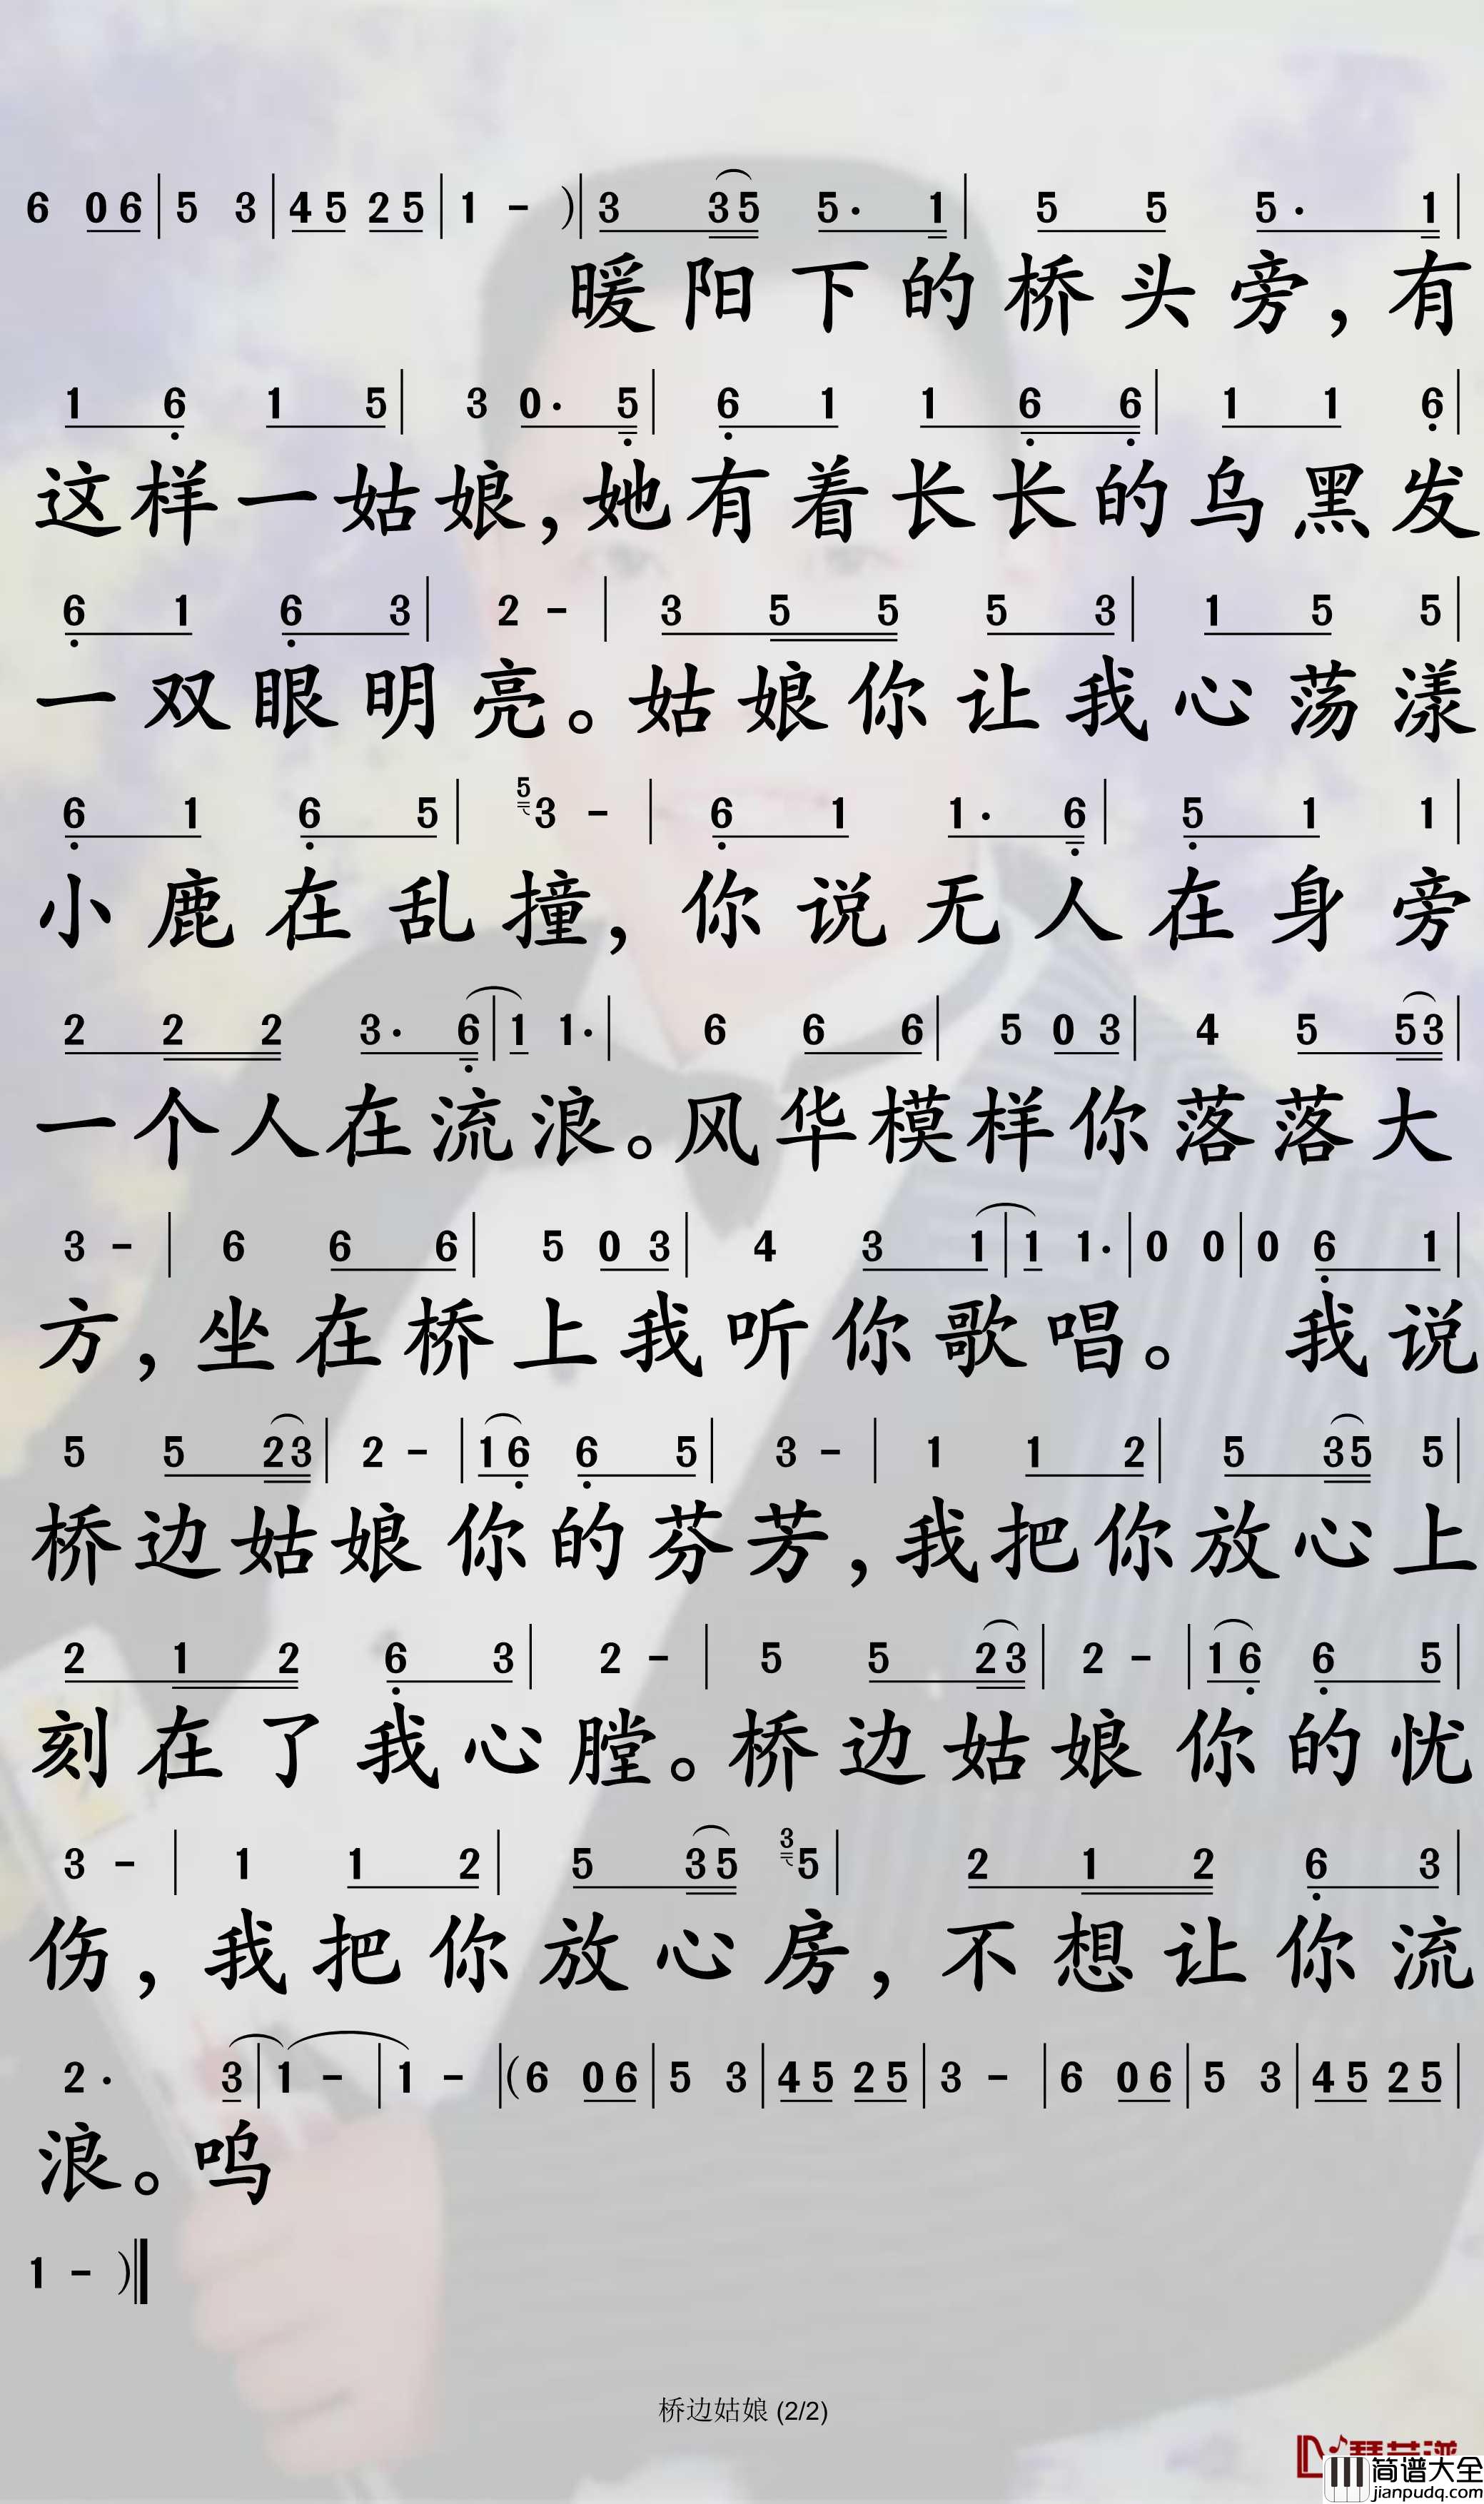 6 06|5 3|45 25|1 - )|3 35 5· 1|5 5 5· 1|
暖阳下的桥头旁,有
1 6 1 5|3 0· 5|6 1 1 6 6|1 1 6|
这样一姑娘,她有着长长的乌黑发
6 1 6 3|2 -|3 5 5 5 3|1 5 5|
一双眼明亮。姑娘你让我心荡漾
6 1 6 5|5 3 -|6 1 1· 6|5 1 1|
小鹿在乱撞,你说无人在身旁
2 2 2 3· 6|1 1·|6 6 6|5 0 3|4 5 53|
一个人在流浪。风华模样你落落大
3 -|6 6 6|5 0 3|4 3 1|1 1·|0 0|0 6 1|
方,坐在桥上我听你歌唱。 我说
5 5 23|2 -|16 6 5|3 -|1 1 2|5 35 5|
桥边姑娘你的芬芳,我把你放心上
2 1 2 6 3|2 -|5 5 23|2 -|16 6 5|
刻在了我心膛。桥边姑娘你的忧
3 -|1 1 2|5 35 3 5|2 1 2 6 3|
伤,我把你放心房,不想让你流
2· 3|1 -|1 -|(6 06|5 3|45 25|3 -|6 06|5 3|45 25|
浪。呜
1 - )‖
桥边姑娘 (2/2)
简谱大全
jianpudq.com